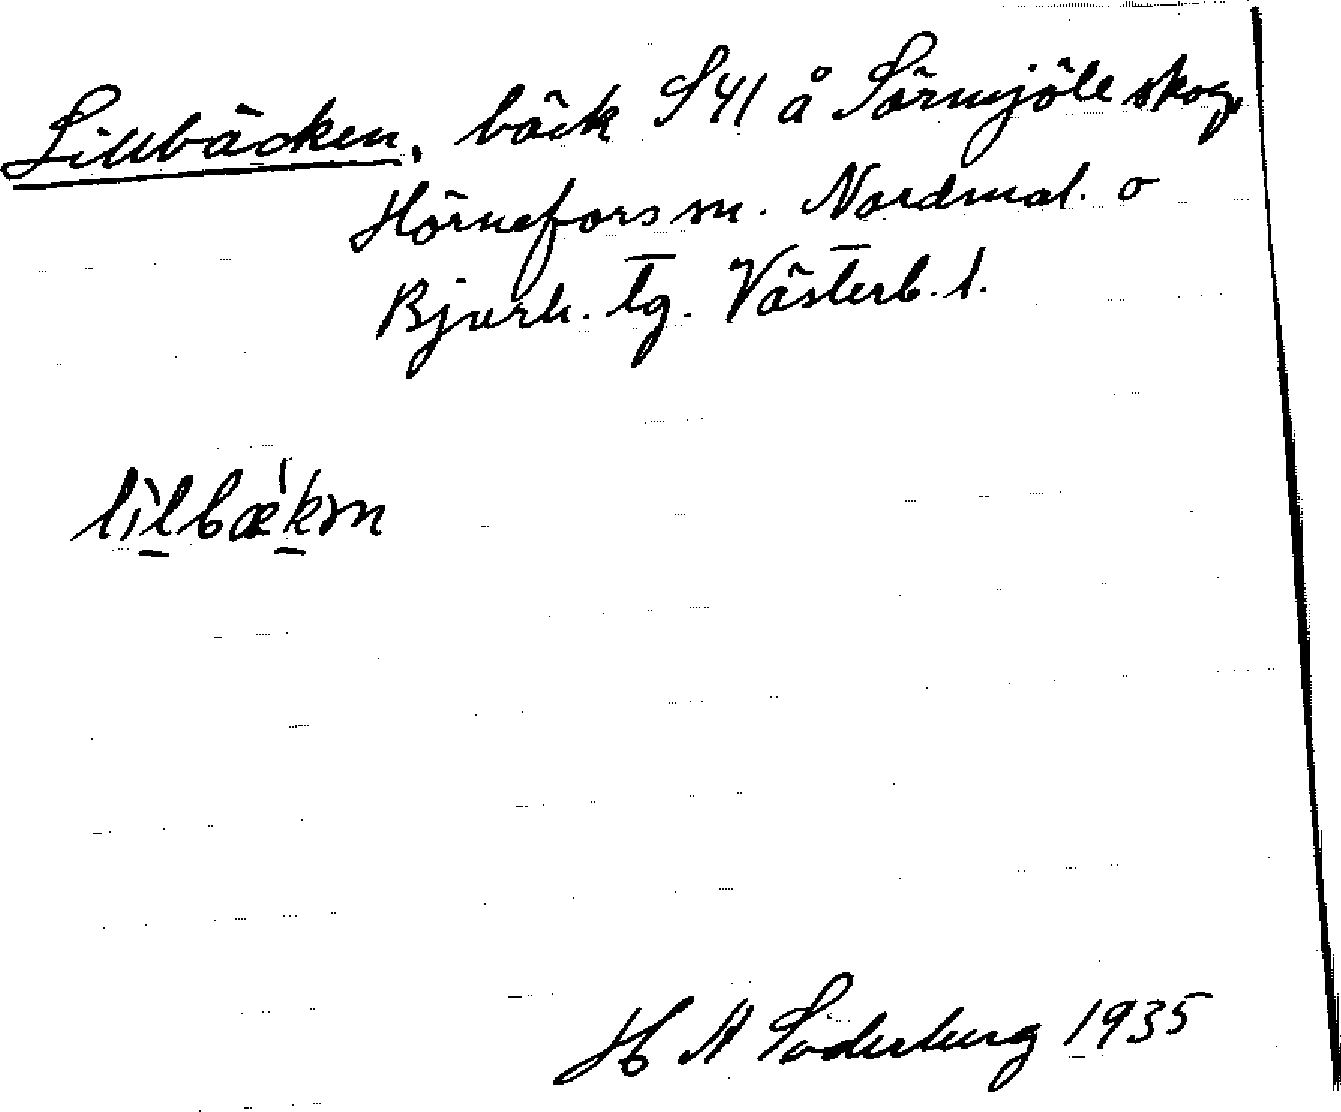 Lillbäcken, bäck S 41 å Sörmjöle skog,
Hörnefors sn. Nordmal. o
Bjurh. tg. Västerb. l.
lìlbæ̀kɷn
H A Söderberg 1935